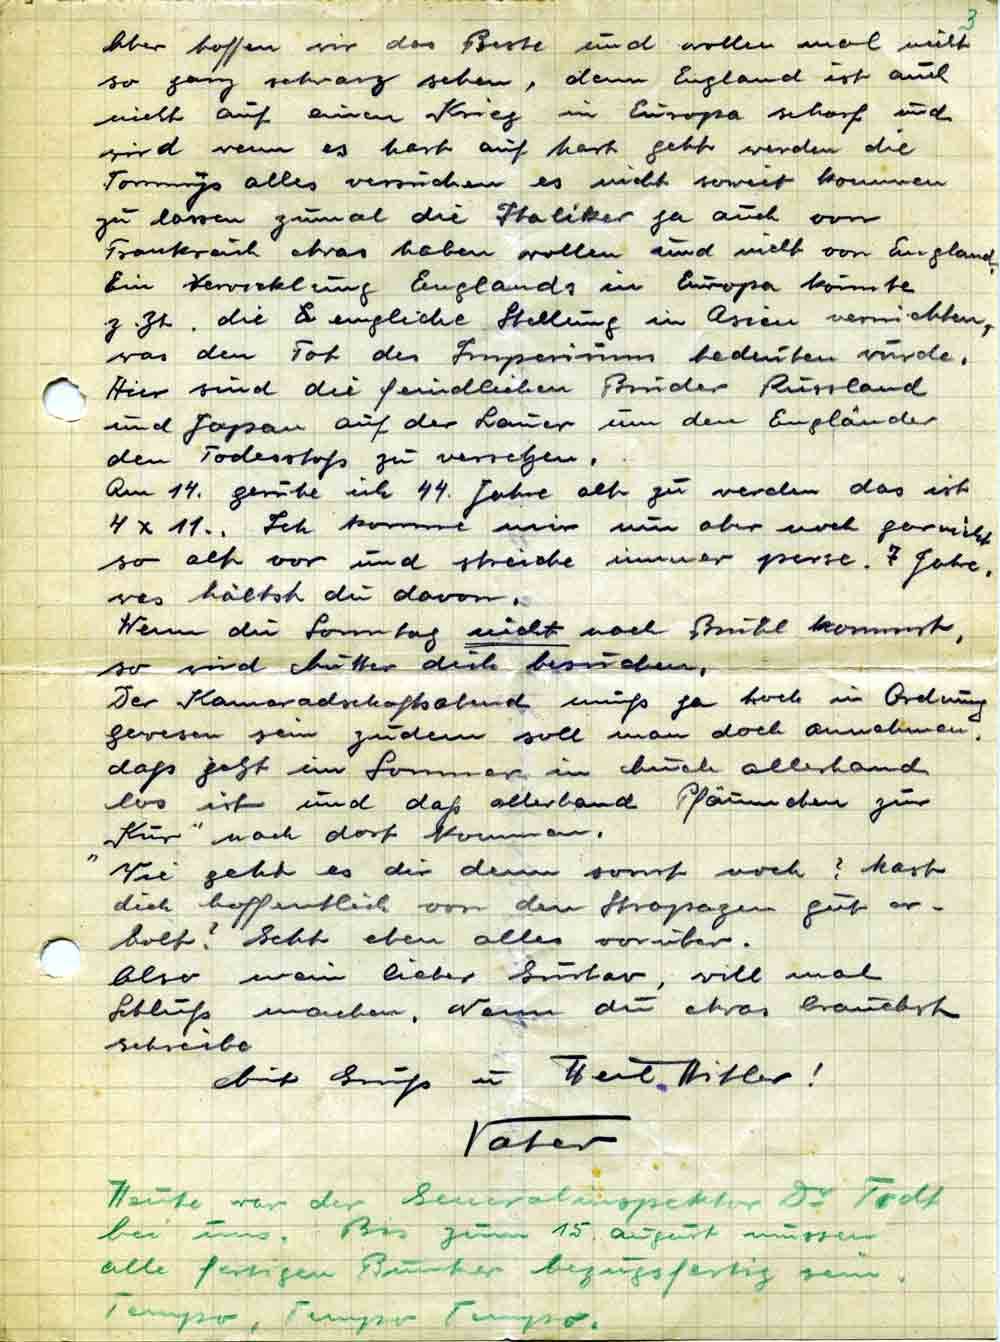 3
Aber hoffen wir das Beste und wollen mal nicht
so ganz schwarz sehen, denn England ist auch
nicht auf einen Krieg in Europa scharf und
wird wenn es hart auf hart geht werden die
Tommÿs alles versuchen es nicht soweit kommen
zu lassen zumal die Italiker ja auch von
Frankreich etwas haben wollen und nicht von England.
Ein Verwicklung Englands in Europa könnte
z. Zt. die E engliche Stellung in Asien vernichten,
was den Tot des Imperiums bedeuten würde.
Hier sind die feindlichen Brüder Russland
und Japan auf der Lauer um den Engländer
den Todesstoß zu versetzen.
Am 14. geruhe ich 44. Jahre alt zu werden das ist
4 x 11.. Ich komme mir nun aber noch garnicht
so alt vor und streiche immer perse. 7 Jahre,
was hältst du davon.
Wenn du Sonntag nicht nach Brühl kommst,
so wird Mutter dich besuchen.
Der Kameradschaftsabend muß ja hoch in Ordnung
gewesen sein zudem soll man doch annehmen,
daß jetzt im Sommer in Much allerhand
los ist und daß allerhand Pfäumchen zur
„Kur“ nach dort kommen.
Wie geht es dir denn sonst noch? Hast
dich hoffentlich von den Strapazen gut er-
holt? Geht eben alles vorüber.
Also mein lieber Gustav, will mal
Schluß machen. Wenn du etwas brauchst
schreibe
Mit Gruß u Heil Hitler!
Vater
Heute war der Generalinspektor Dr Todt
bei uns. Bis zum 15. august müssen
alle fertigen Bunker bezugsfertig sein.
Tempo, Tempo Tempo.